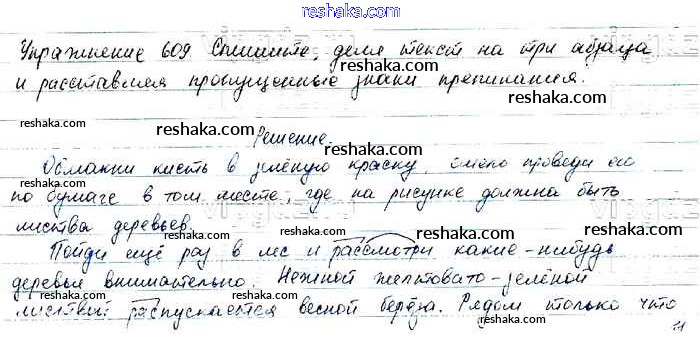 reshaka.com
reshaka.com
Упражнение 609. Спишите, деля текст на три абзаца
и расставляя пропущенные знаки препинания.
reshaka.com
reshaka.com
reshaka.com
reshaka.com
Решение
Обмакни кисть в зелёную краску, смело проведи ею
reshaka.com
по бумаге в том месте, где на рисунке должна быть
листва деревьев.
reshaka.com
reshaka.com
Пойди ещё раз в лес и рассмотри какие-нибудь
reshaka.com
деревья внимательно. Нежной желтовато-зелёной
листвой распускается весной берёза. Рядом только что
reshaka.com
reshaka.com